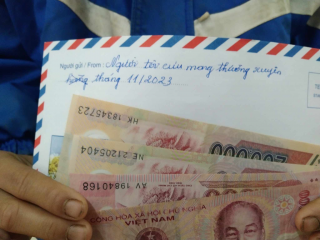 Người gửi / From: Người tóc cứu mang thường xuyên
tháng 11/2023
HK 18345723
NE 21205404
AV 19840168
CỘNG HÒA XÃ HỘI CHỦ NGHĨA
VIỆT NAM